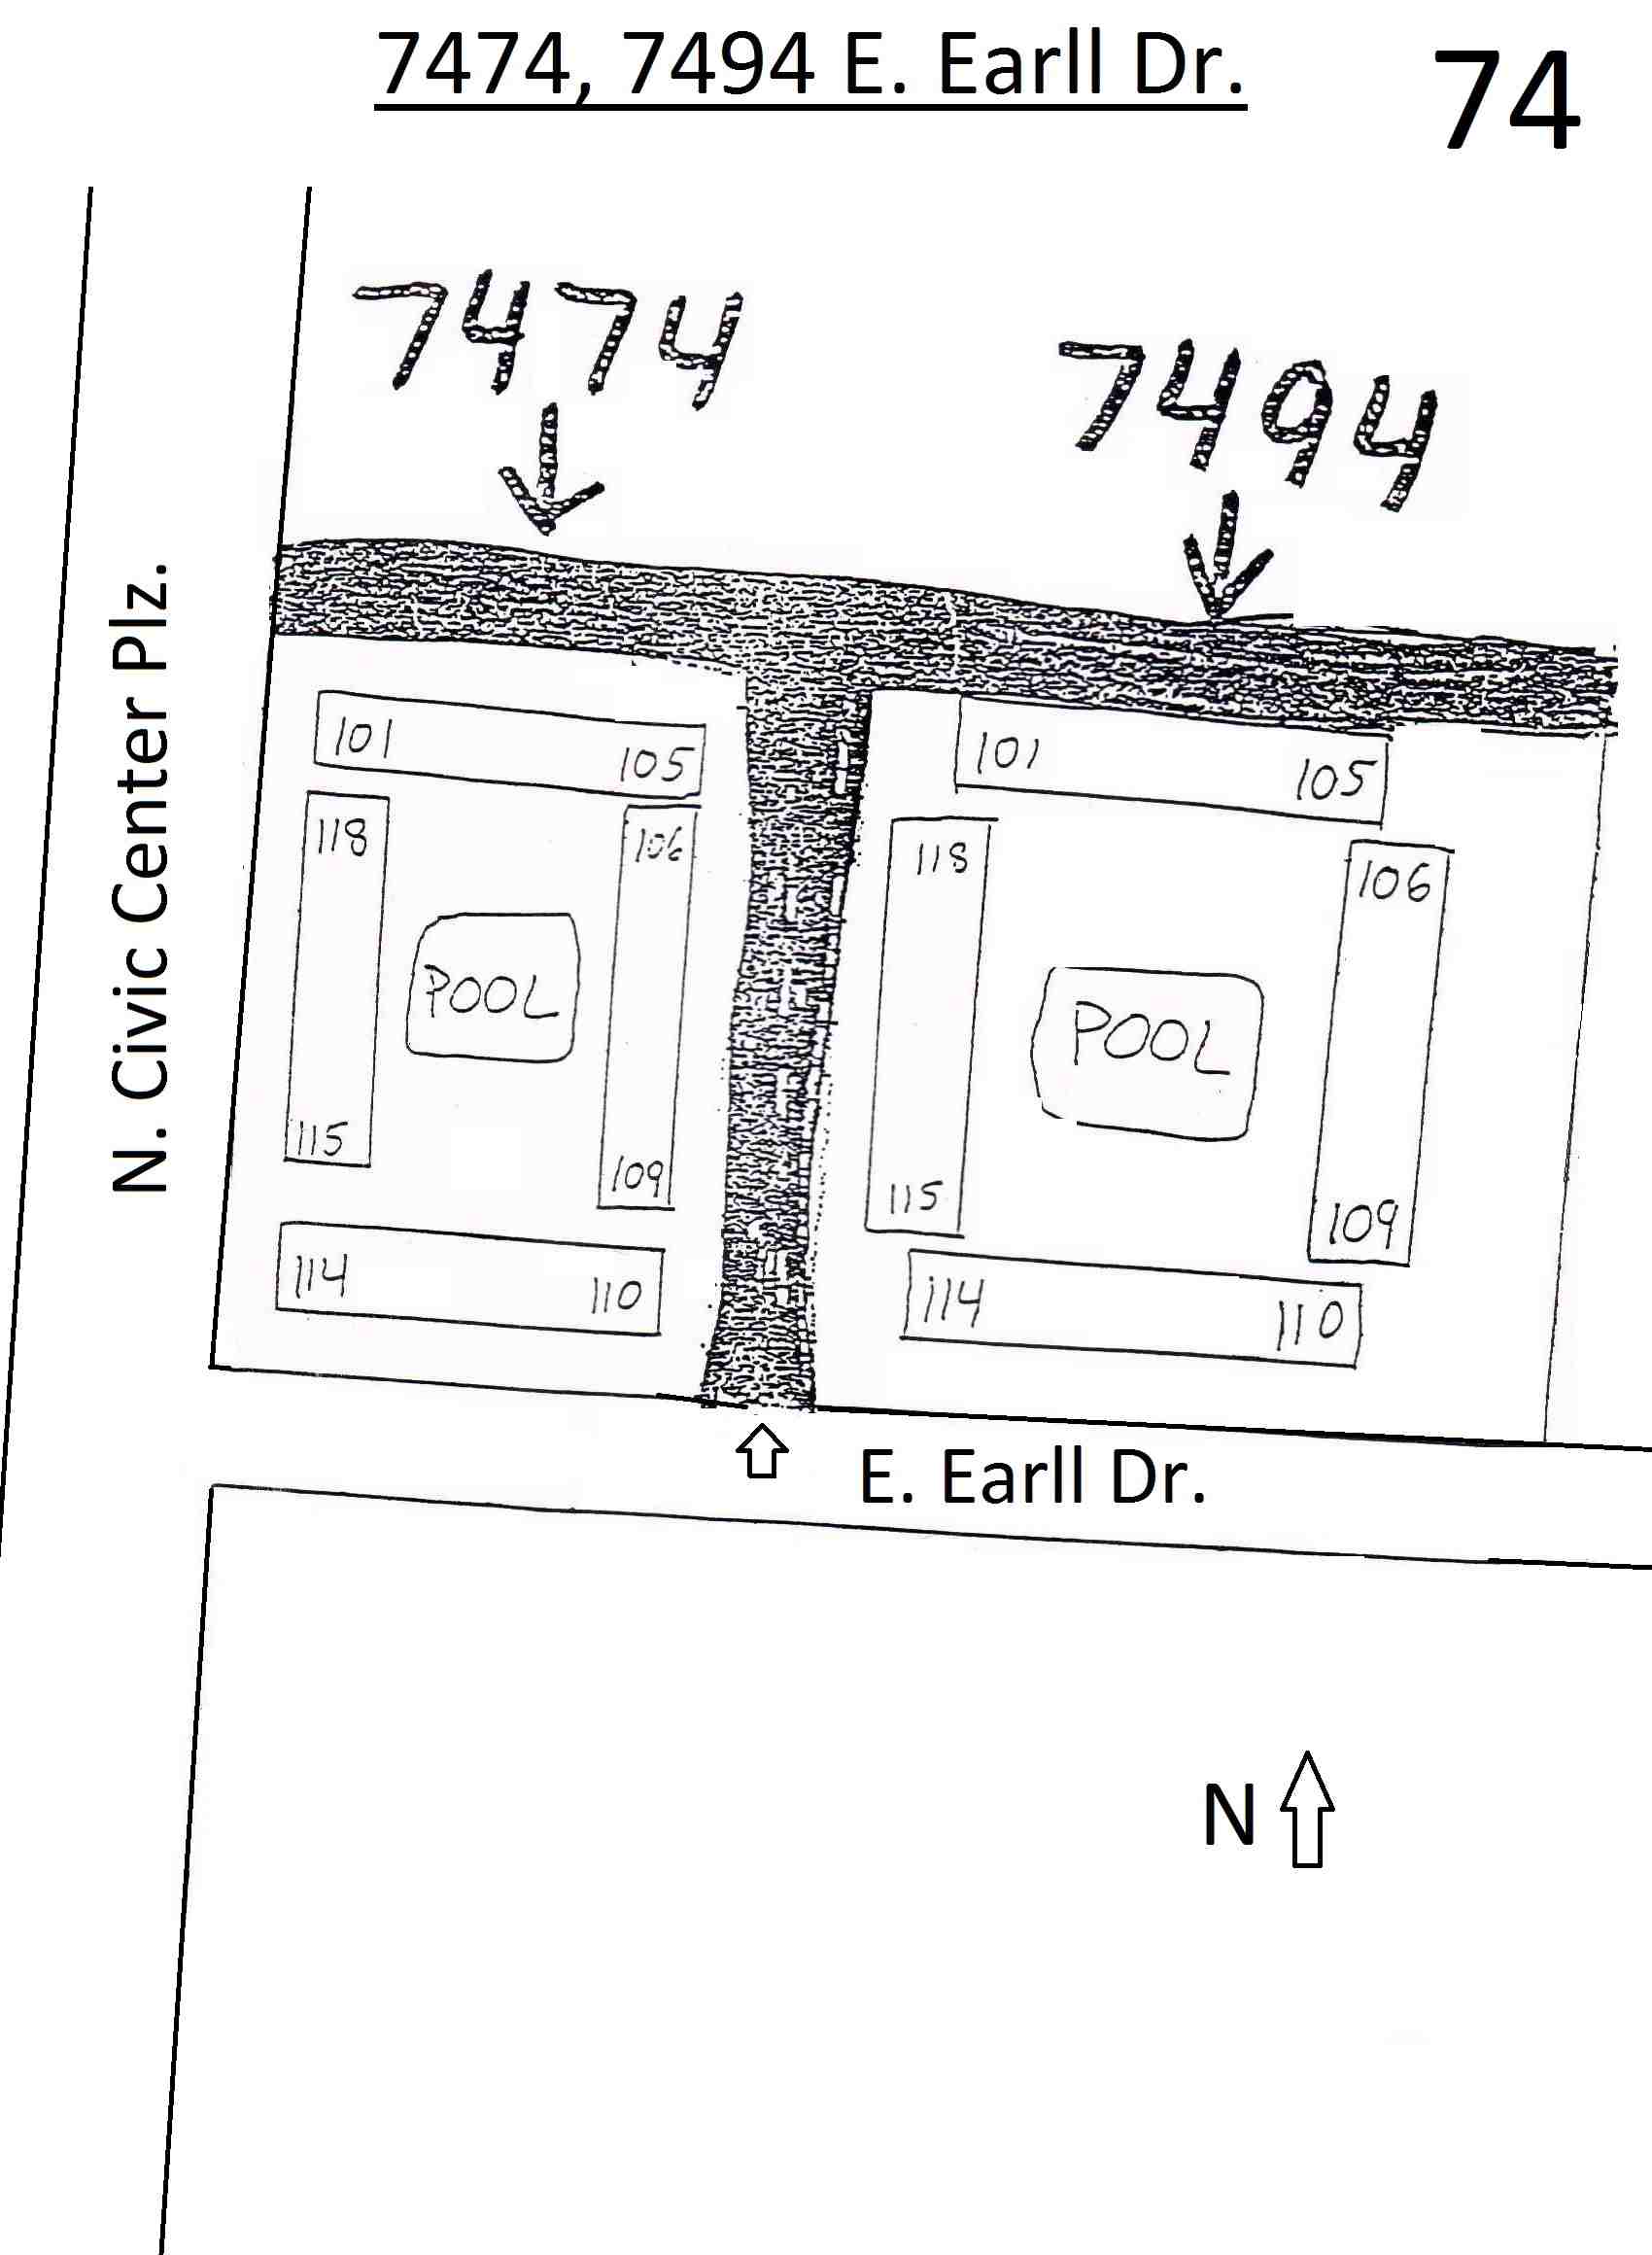 7474, 7494 E. Earll Dr.
74
7474
7494
N. Civic Center Plz.
101 105
118
106
POOL
115
109
114 110
101 105
118
106
POOL
115
109
114 110
E. Earll Dr.
N